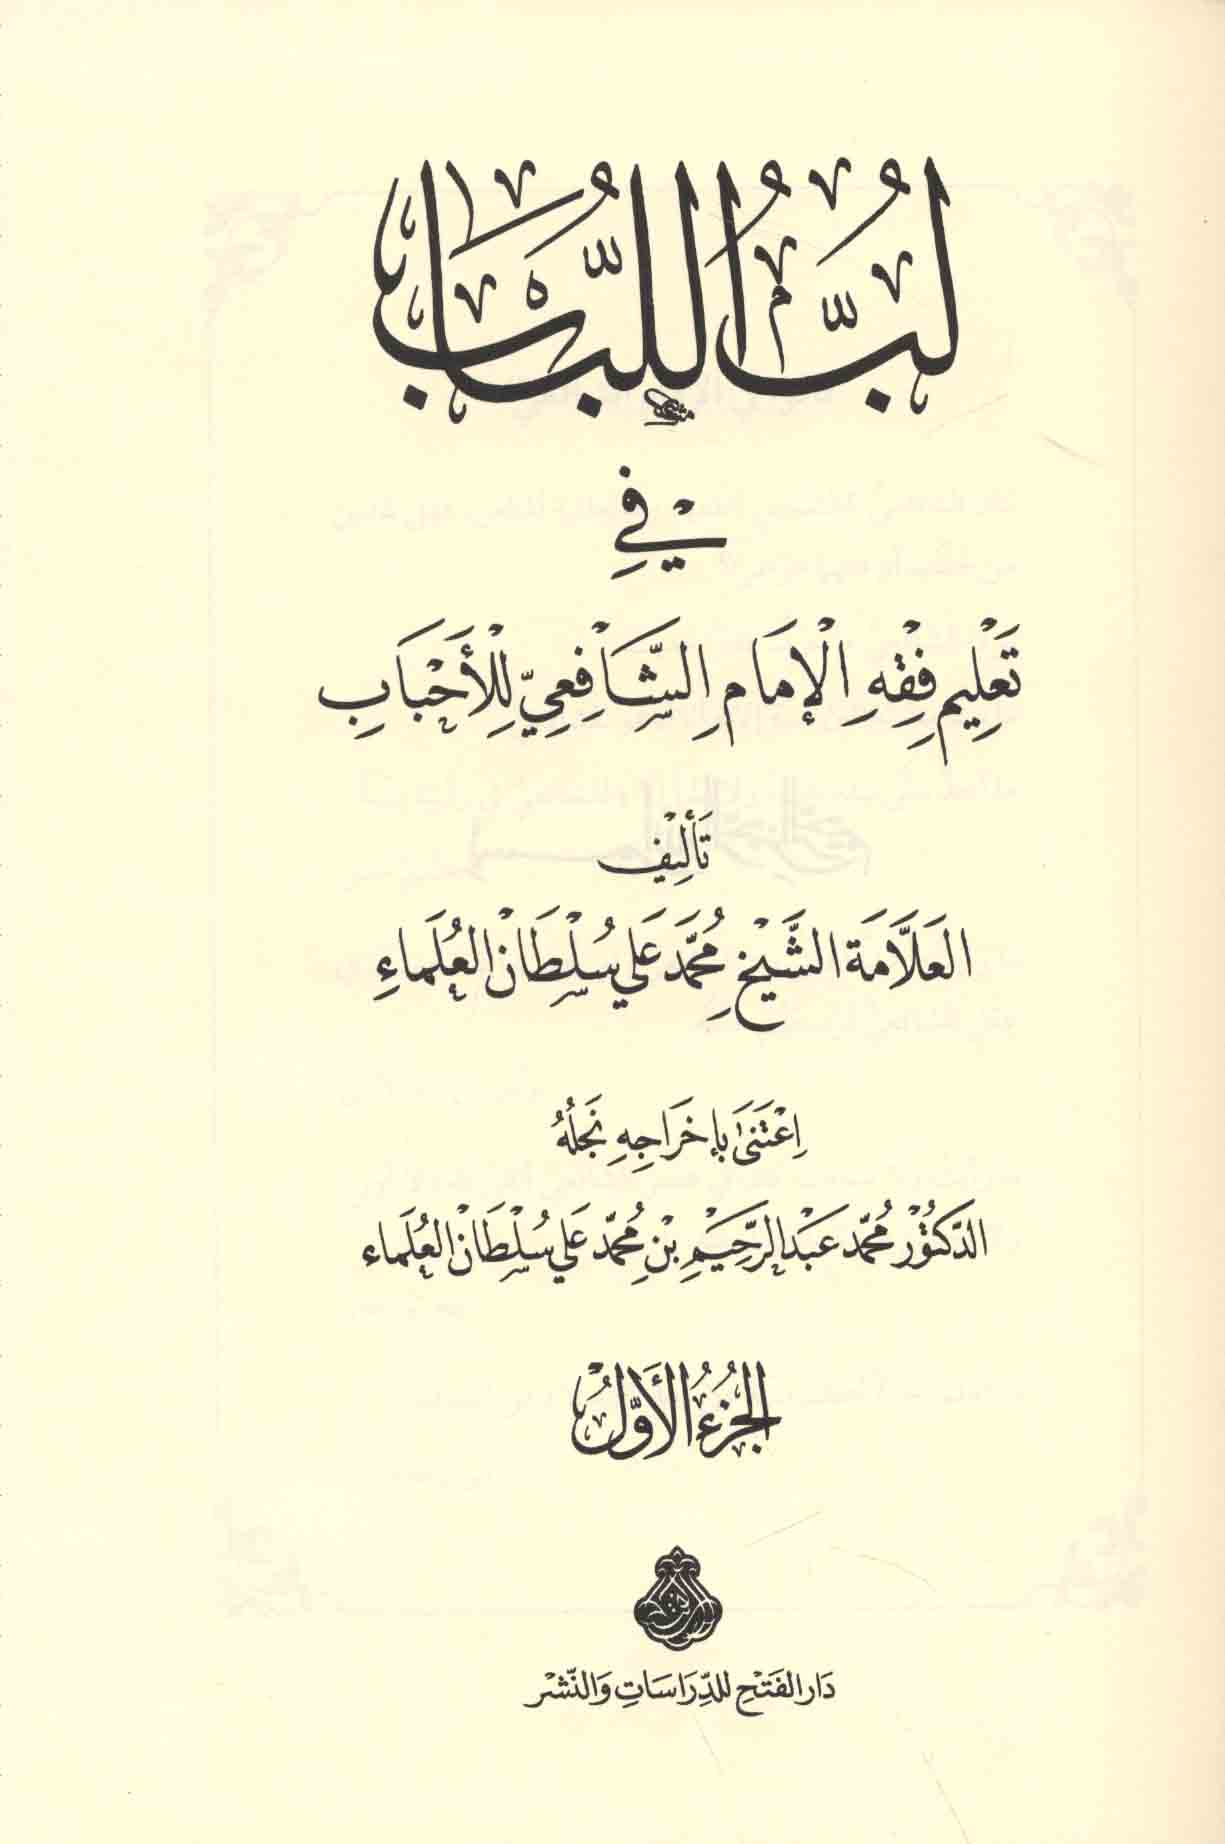 لُبُّ اللُّبَاب
فِي
تَعْلِيمِ فِقْهِ الْإِمَامِ الشَّافِعِيِّ لِلْأَحْبَابِ
تَأْلِيف
العَلَّامَة الشَّيْخِ مُحَمَّد عَلي سُلْطَانْ العُلَمَاءِ
اِعْتَنَىٰ بِإِخْرَاجِهِ نَجْلُهُ
الدَّكتُوْر مُحَمَّد عَبْد الرَّحِيْمِ بْنِ مُحَمَّد عَلي سُلْطَانْ العُلَمَاء
الجُزْءُ الأَوَّلُ
دَار الفَتْحِ لِلدِّرَاسَاتِ وَالنَّشْر